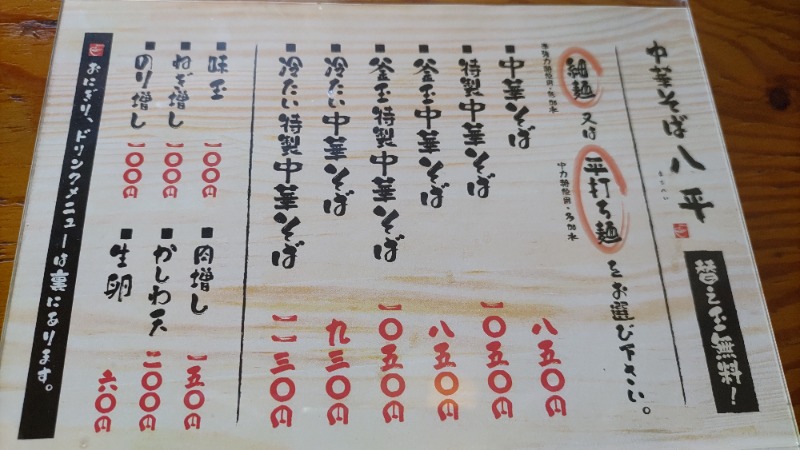 中華そば 八平
はっぺい
替え玉無料!
細麺 又は 平打ち麺 をお選び下さい。
■ 中華そば 八五〇円
■ 特製中華そば 一〇五〇円
■ 釜玉中華そば 八五〇円
■ 釜玉特製中華そば 一〇五〇円
■ 冷たい中華そば 九三〇円
■ 冷たい特製中華そば 一一三〇円
■ 味玉 一〇〇円
■ 肉増し 一五〇円
■ ねぎ増し 一〇〇円
■ かしわ天 二〇〇円
■ のり増し 一〇〇円
■ 生卵 六〇円
おにぎり、ドリンクメニューは裏にあります。